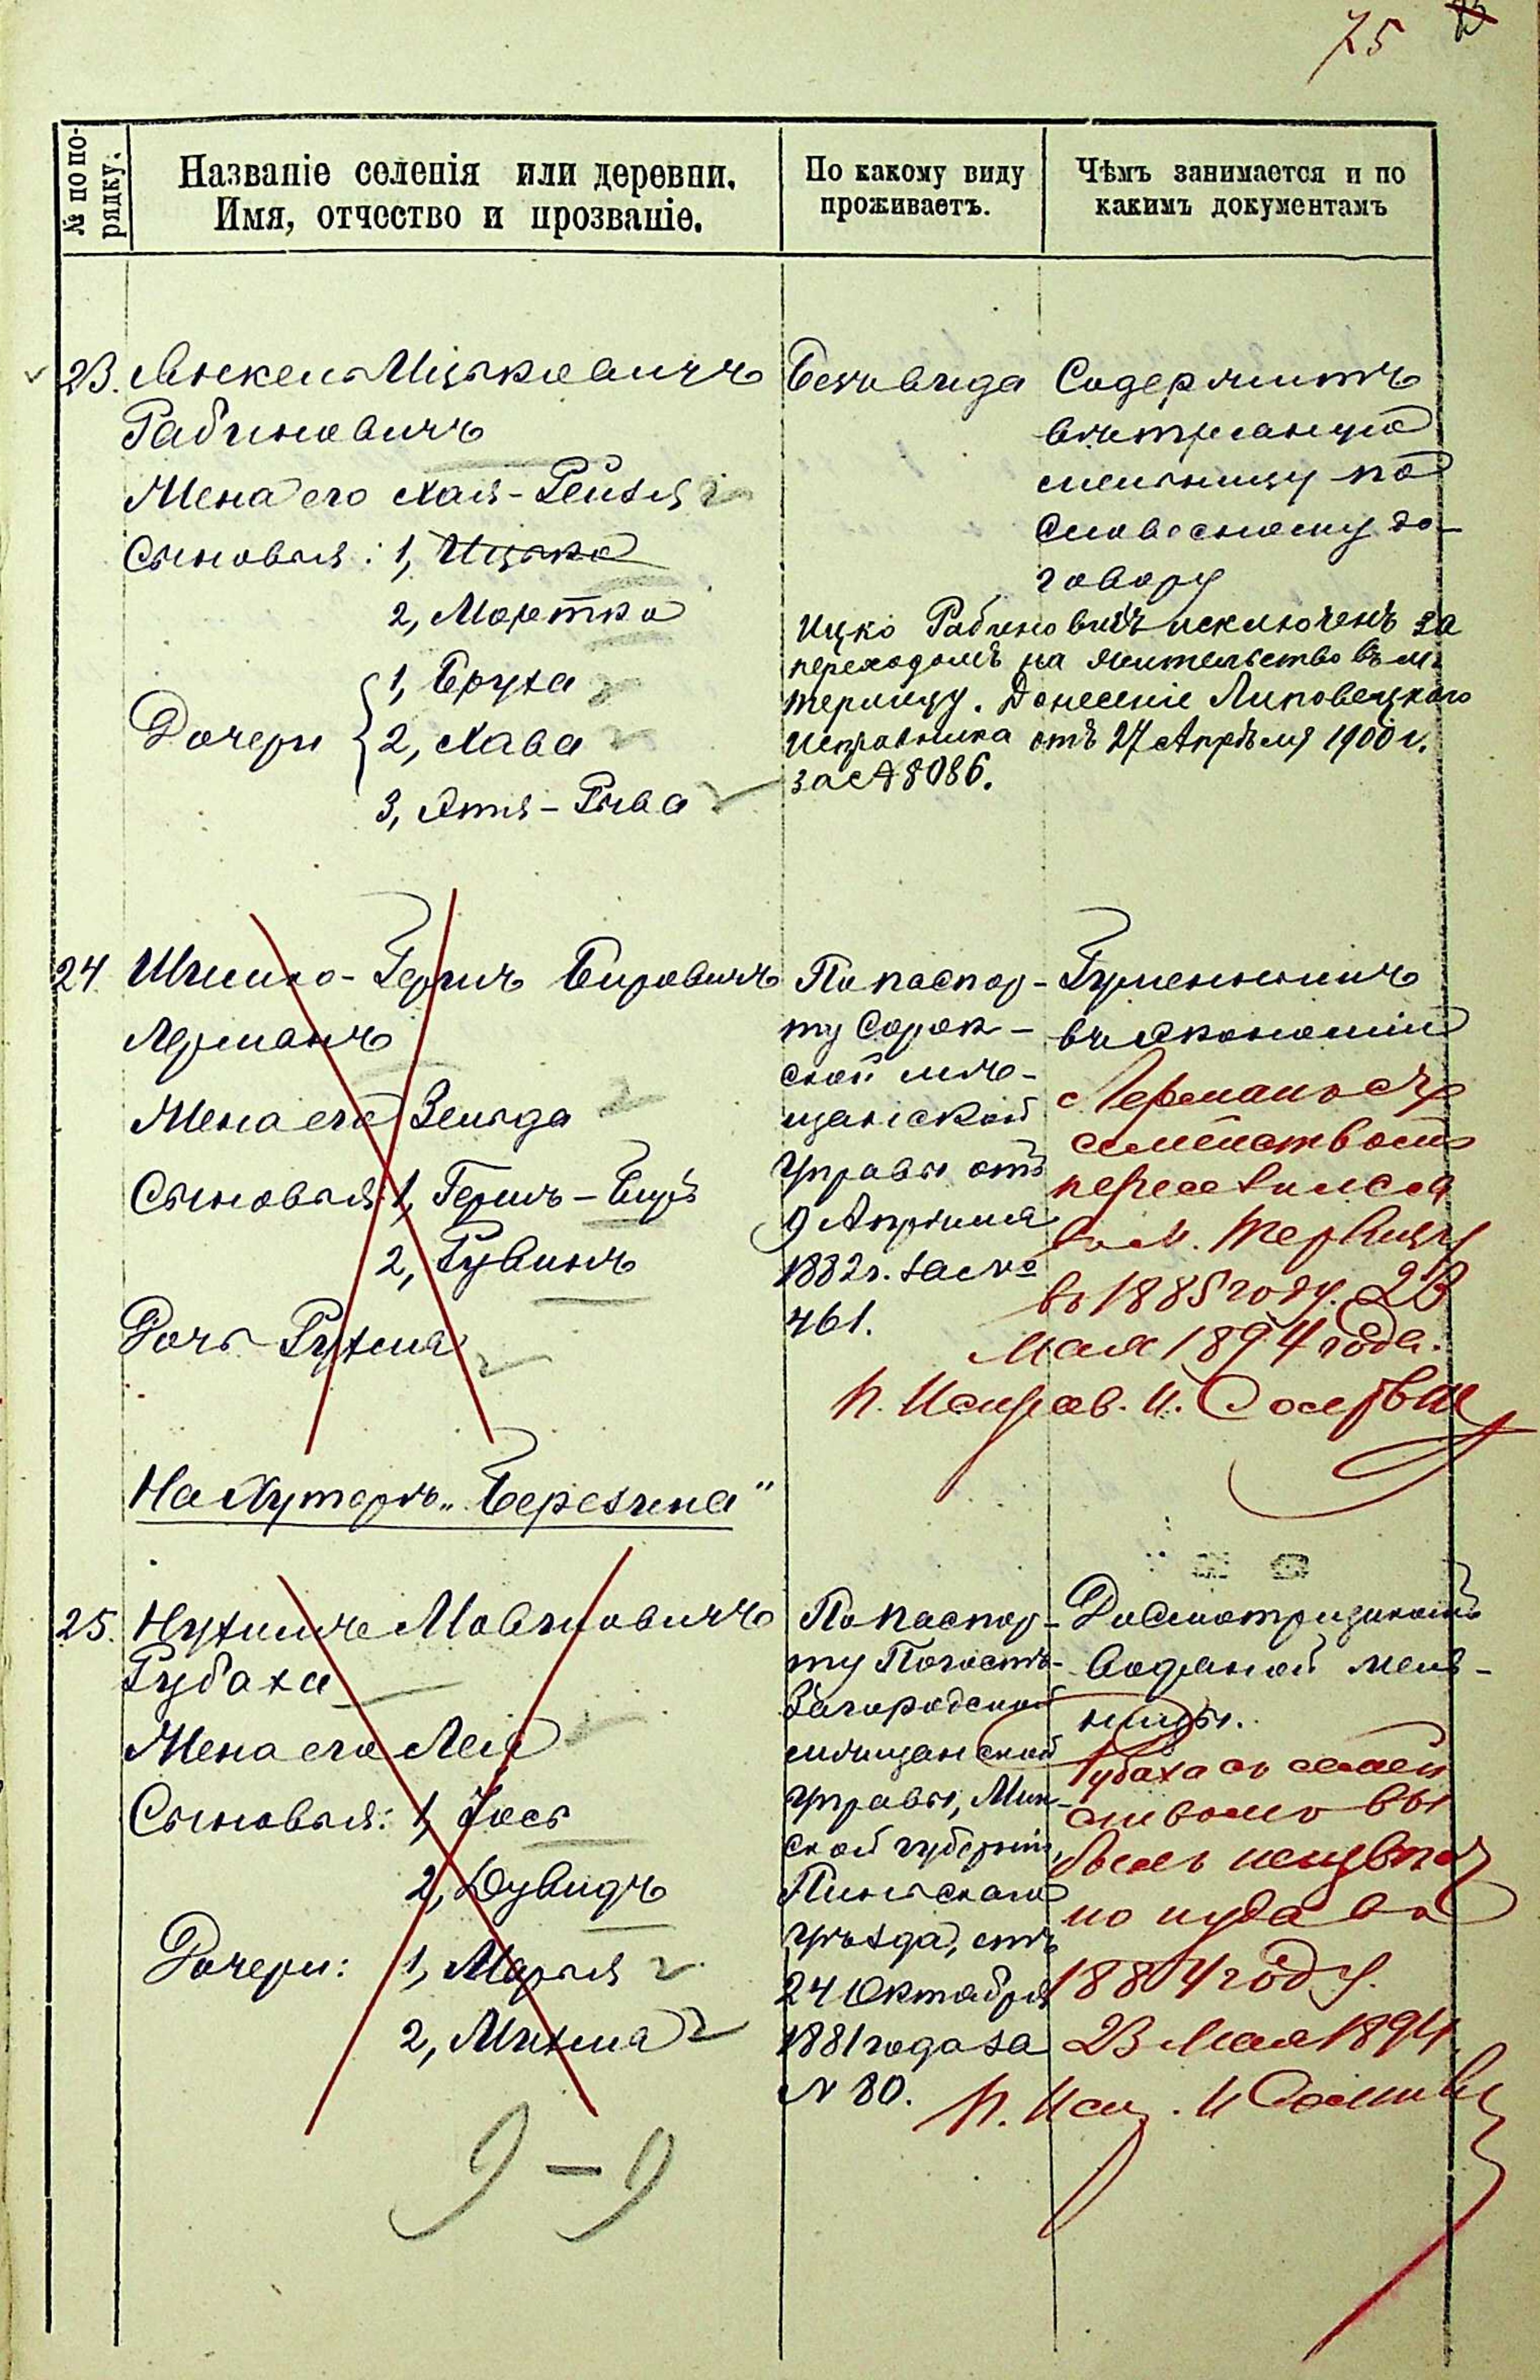 75
№ по по-
рядку.
Названіе селенія или деревни.
Имя, отчество и прозваніе.
По какому виду
проживаетъ.
Чѣмъ занимается и по
какимъ документамъ
23. Янкель Ицьковичъ
Рабиновичъ
Жена его Хая-Рейзя
Сыновья: 1, Ицько
2, Мортко
Дочери
1, Бруха
2, Хава
3, Этя-Рыва
Безъ вида
Содержитъ
вѣтряную
мельницу по
словесному до-
говору
Ицко Рабиновичъ исключенъ за
переходомъ на жительство въ м.
Терлицу. Донесеніе Липовецкаго
Исправника отъ 27 Апрѣля 1900 г.
за № 8086.
24 Шмилъ-Гершъ Беровичъ
Лерманъ
Жена его Зельда
Сыновья: 1, Гершъ-Беръ
2, Рувинъ
Дочь Рухля
По паспор-
ту Сорок-
ской мѣ-
щанской
Управы отъ
9 Апрѣля
1882 г. за №
461.
Гуменный
въ экономіи
Лерманъ съ
семействомъ
переселился
въ м. Терлицу
въ 1885 году. 23
мая 1894 года.
П. Исправ. И.
На Хуторѣ „Березина"
25. Нухимъ Мовшовичъ
Рубаха
Жена его Лея
Сыновья: 1, Іось
2, Дувидъ
Дочери: 1, Марья
2, Михля
По паспор-
ту Погостъ-
Загородской
мѣщанской
Управы, Мин-
ской губерніи,
Пинскаго
уѣзда, отъ
24 Октября
1881 года за
№ 80.
Досмотрщикомъ
водяной мель-
ницы.
Рубаха съ семей
ствомъ вы
былъ неизвѣст
но куда въ
1884 году.
23 Мая 1894.
П. Исп. И
9 – 9